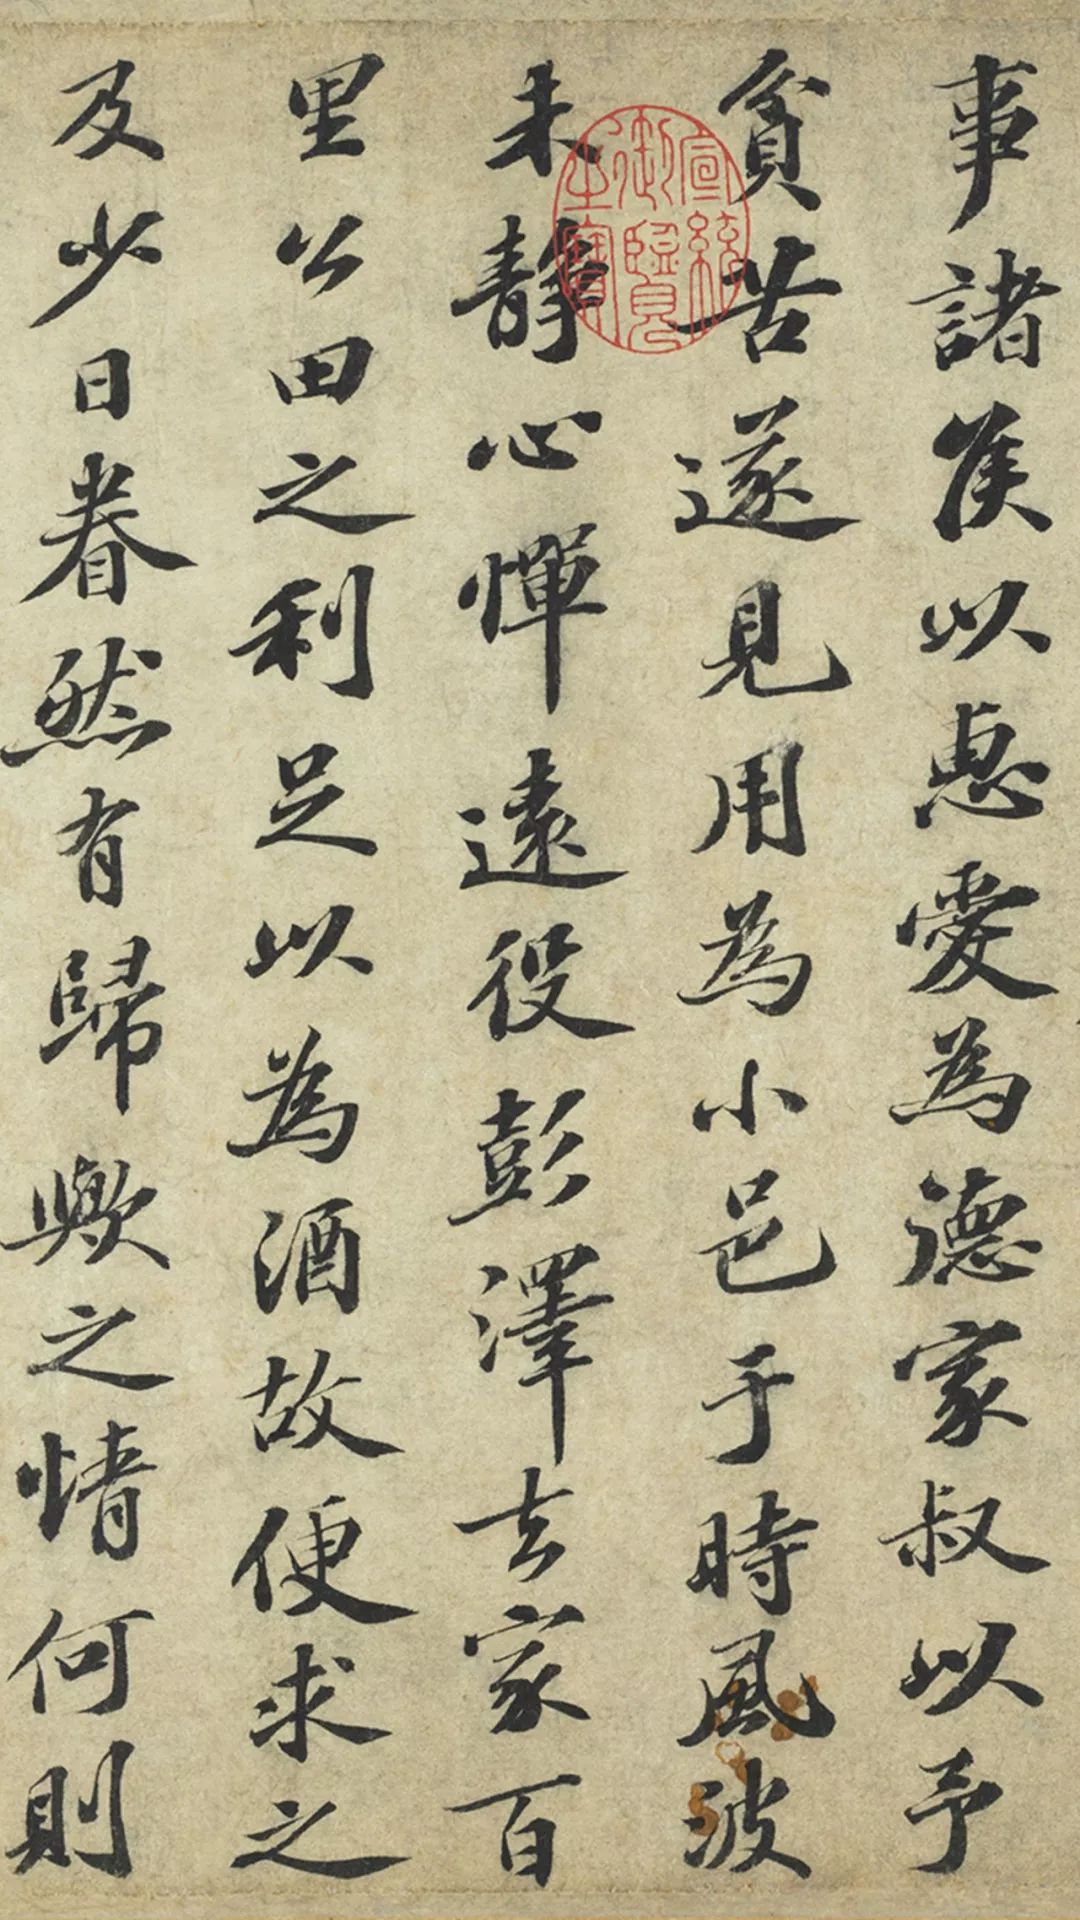 事諸侯以惠愛為德家叔以予
貧苦遂見用為小邑于時風波
未靜心憚遠役彭澤去家百
里公田之利足以為酒故便求之
及少日眷然有歸歟之情何則
宣統御覽之寶